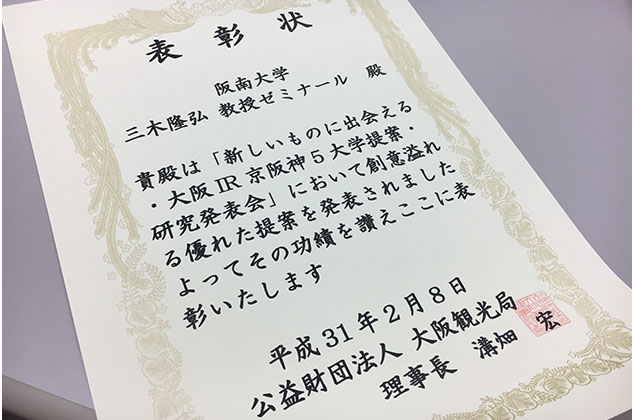 表彰状
阪南大学
三木隆弘 教授ゼミナール 殿
貴殿は「新しいものに出会える
・大阪IR京阪神5大学提案・
研究発表会」において創意溢れ
る優れた提案を発表されました
よってその功績を讃えここに表
彰いたします
平成31年2月8日
公益財団法人 大阪観光局
理事長 溝畑 宏